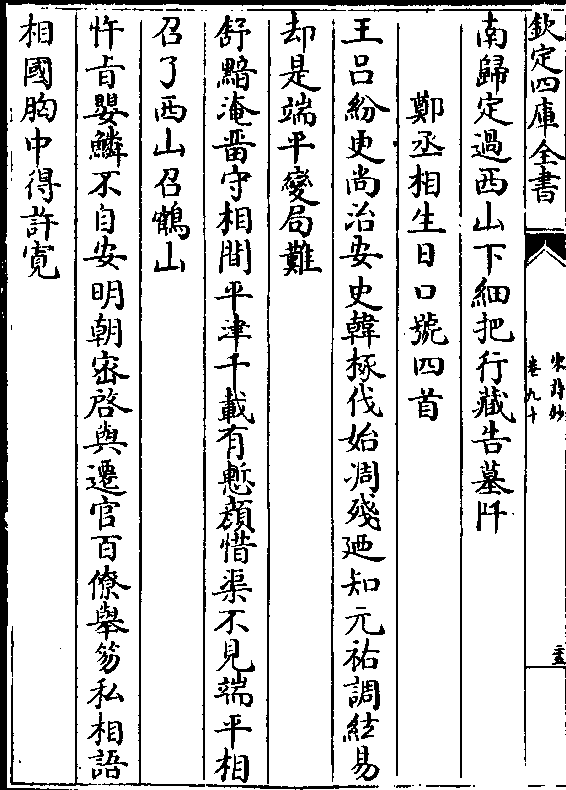 欽定四庫全書
宋詩鈔
卷九十
南歸定過西山下細把行藏告墓阡
鄭丞相生日口號四首
王呂紛更尚治安史韓椓伐始凋殘廼知元祐調絃易
却是端平變局難
舒黯淹菑守相間平津千載有慙顔惜渠不見端平相
召了西山召鶴山
忤旨嬰鱗不自安明朝密啓與遷官百僚舉笏私相語
相國胸中得許寛